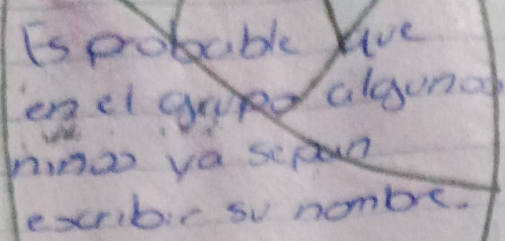 Es probable que
en el grupo algunos
niños ya sepan
escribir su nombre.